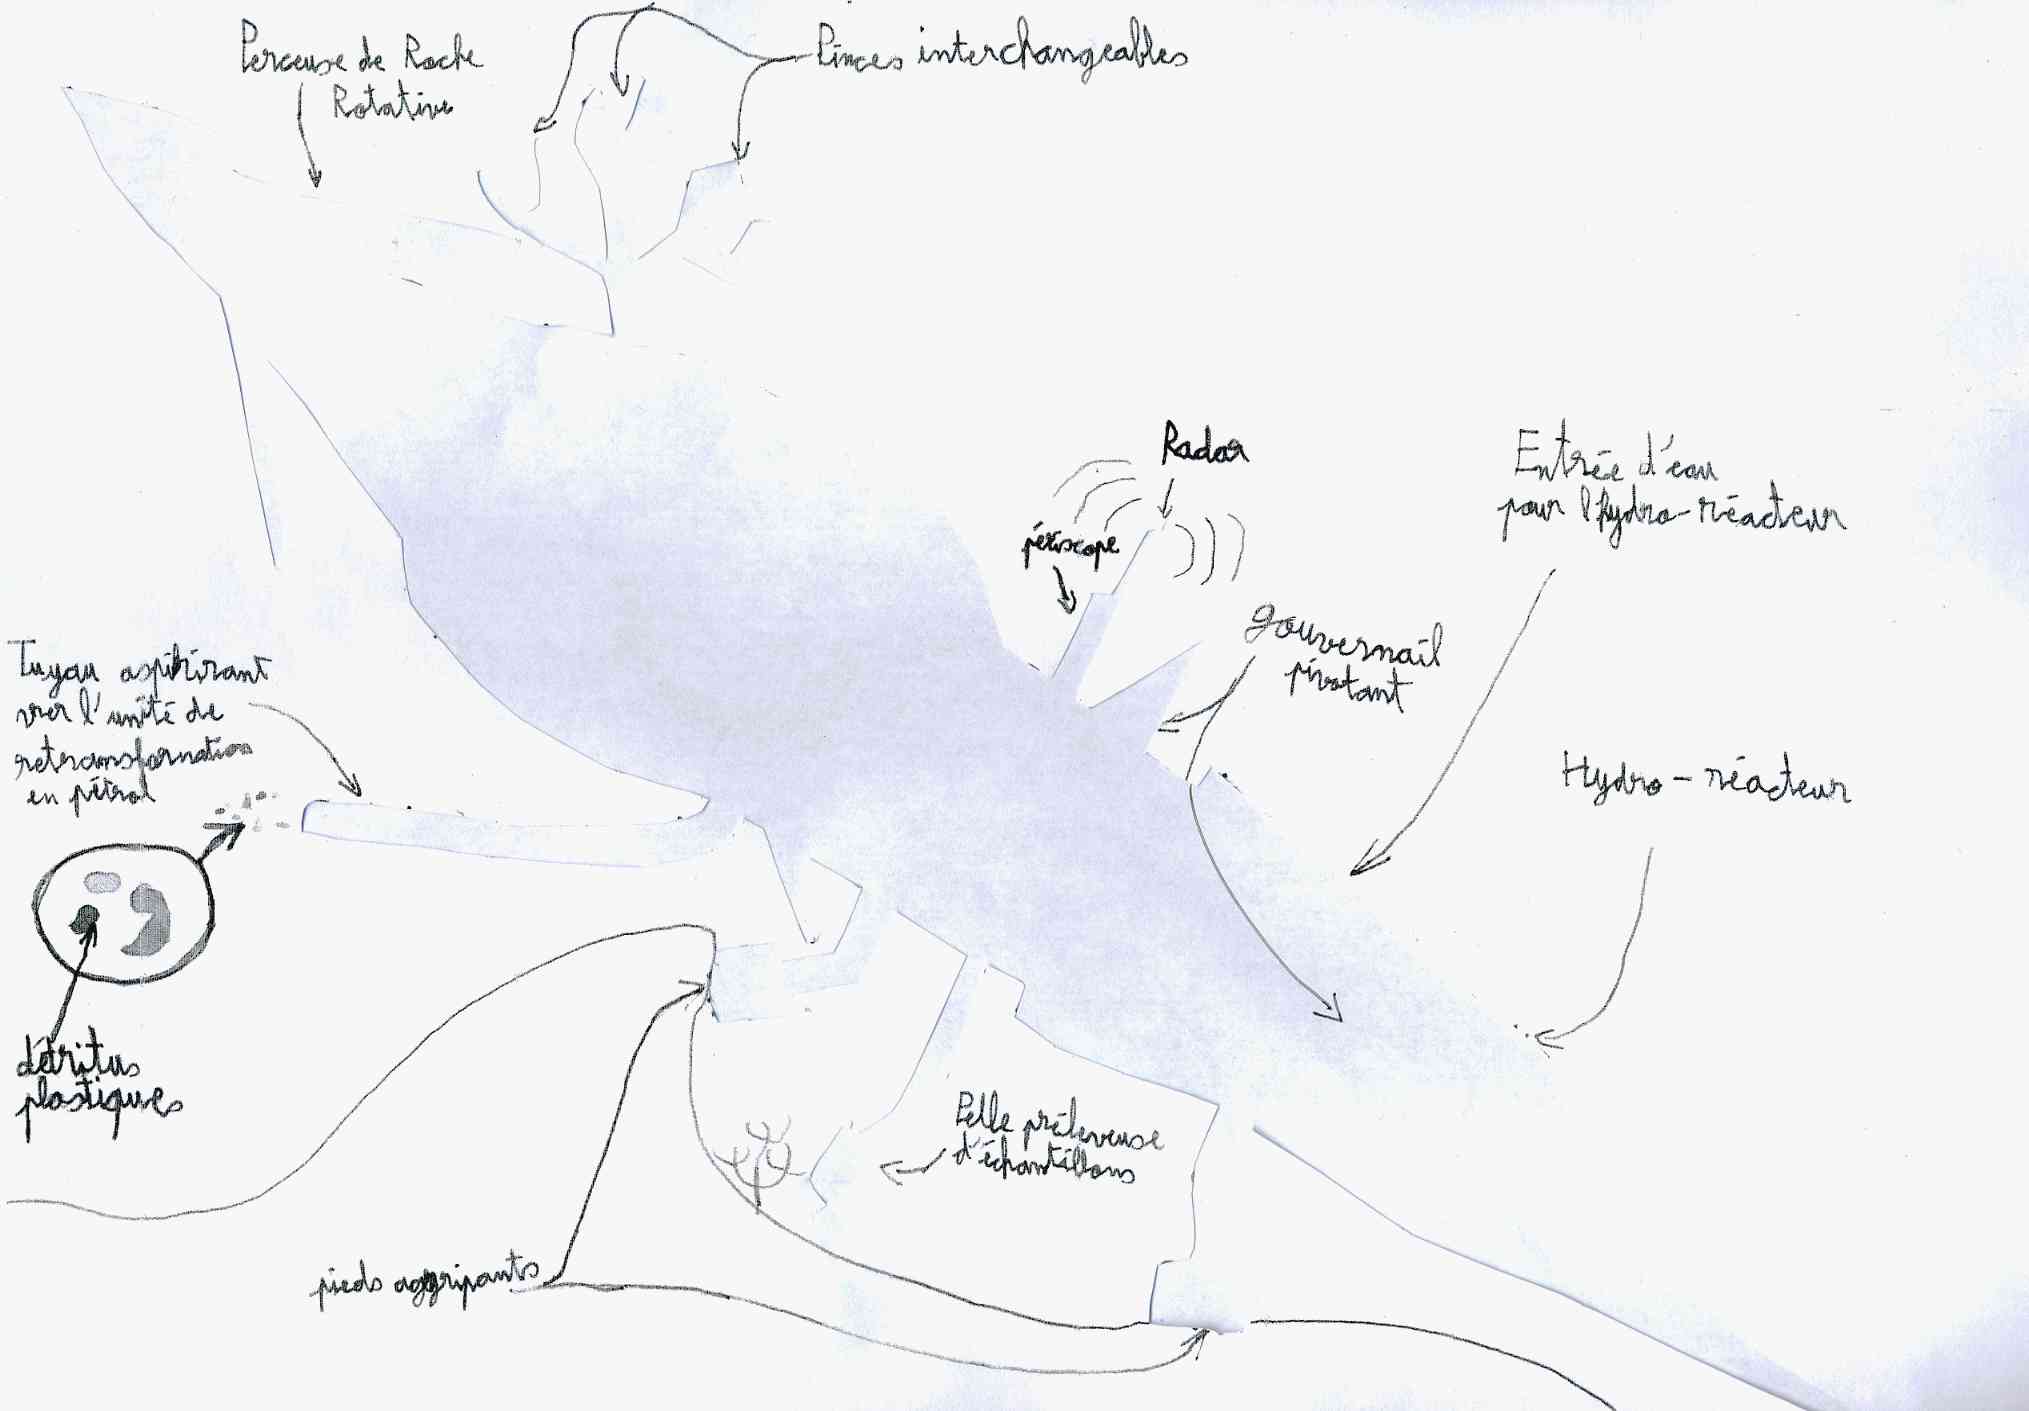 Perceuse de Roche
Rotative
Pinces interchangeables
Radar
périscope
Entrée d'eau
pour l'hydro-réacteur
gouvernail
pivotant
Hydro-réacteur
Tuyau aspirant
vers l'unité de
retransformation
en pétrol
détritus
plastiques
Pelle préleveuse
d'échantillons
pieds aggripants